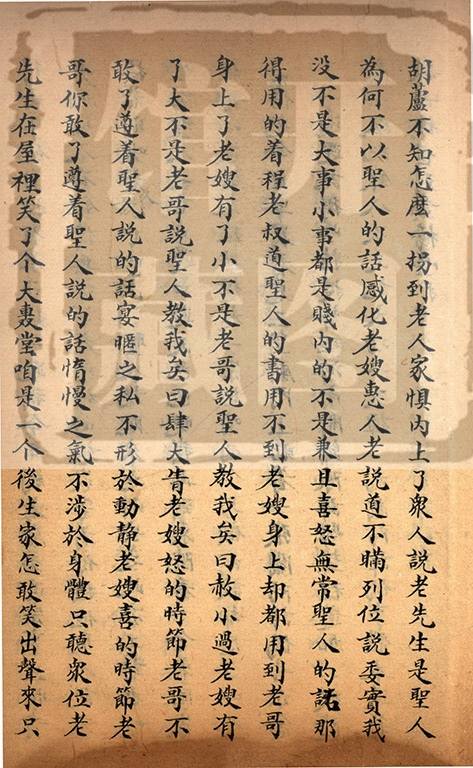 胡蘆不知怎麽一拐到老人家惧内上了衆人説老先生是聖人
為何不以聖人的話感化老嫂惠人老説道不瞞列位説委實我
没不是大事小事都是賤内的不是兼且喜怒無常聖人的話那
得用的着程老叔道聖人的書用不到老嫂身上却都用到老哥
身上了老嫂有了小不是老哥説聖人教我矣曰赦小過老嫂有
了大不是老哥説聖人教我矣曰肆大眚老嫂怒的時節老哥不
敢了遵着聖人説的話宴暱之私不形於動静老嫂喜的時節老
哥你敢了遵着聖人説的話惰慢之氣不渉於身體只聽衆位老
先生在屋裡笑了个大轟堂咱是一个後生家怎敢笑出聲來只